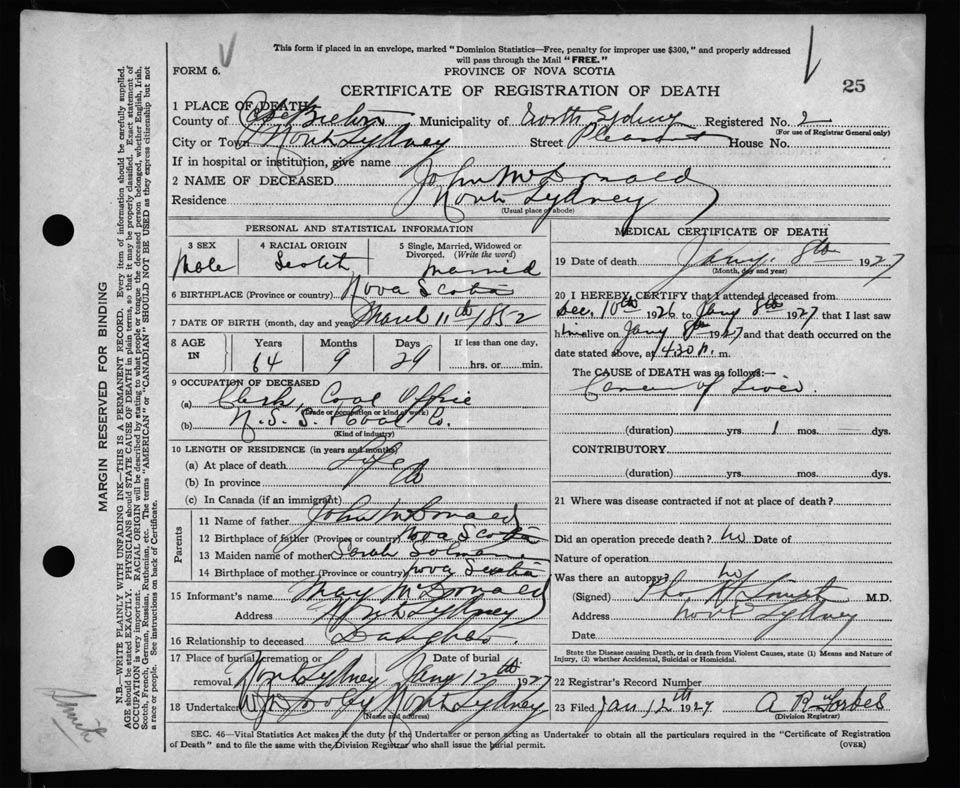 This form if placed in an envelope, marked "Dominion Statistics—Free, penalty for improper use $300," and properly addressed
will pass through the Mail "FREE."
FORM 6.
PROVINCE OF NOVA SCOTIA
25
CERTIFICATE OF REGISTRATION OF DEATH
1 PLACE OF DEATH
County of Cape Breton Municipality of North Sydney Registered No. 2
(For use of Registrar General only)
City or Town North Sydney Street Pleasant House No.
If in hospital or institution, give name
2 NAME OF DECEASED John McDonald
Residence North Sydney
(Usual place of abode)
PERSONAL AND STATISTICAL INFORMATION
3 SEX 4 RACIAL ORIGIN 5 Single, Married, Widowed or
Divorced. (Write the word)
Male Scotch married
6 BIRTHPLACE (Province or country) Nova Scotia
7 DATE OF BIRTH (month, day and year) March 11th 1852
8 AGE IN Years Months Days If less than one day,
64 9 29 hrs. or min.
9 OCCUPATION OF DECEASED
(a) Clerk, Coal Office
(Trade or occupation or kind of work)
(b) N.S.S. & Coal Co.
(Kind of industry)
10 LENGTH OF RESIDENCE (in years and months)
(a) At place of death Life
(b) In province do
(c) In Canada (if an immigrant)
Parents
11 Name of father John McDonald
12 Birthplace of father (Province or country) Nova Scotia
13 Maiden name of mother Sarah
14 Birthplace of mother (Province or country) Nova Scotia
15 Informant's name May McDonald
Address North Sydney
16 Relationship to deceased Daughter.
17 Place of burial, cremation or Date of burial
removal North Sydney Jany 12th 1927
18 Undertaker North Sydney
(Name and address)
MEDICAL CERTIFICATE OF DEATH
19 Date of death Jany. 8th 1927
(Month, day and year)
20 I HEREBY CERTIFY that I attended deceased from
Dec. 10th 1926 to Jany 8th 1927, that I last saw
him alive on Jany 8th 1927 and that death occurred on the
date stated above, at 4.30 P. m.
The CAUSE of DEATH was as follows:—
Cancer of Liver.
(duration) yrs. 1 mos. — dys.
CONTRIBUTORY
(duration) yrs. mos. dys.
21 Where was disease contracted if not at place of death?
Did an operation precede death? no Date of
Nature of operation
Was there an autopsy? no
(Signed) M.D.
Address North Sydney
Date
State the Disease causing Death, or in death from Violent Causes, state (1) Means and Nature of
Injury, (2) whether Accidental, Suicidal or Homicidal.
22 Registrar's Record Number
23 Filed Jan 12th 1927 A R Forbes
(Division Registrar)
SEC. 46—Vital Statistics Act makes it the duty of the Undertaker or person acting as Undertaker to obtain all the particulars required in the "Certificate of Registration
of Death" and to file the same with the Division Registrar who shall issue the burial permit.
(OVER)
MARGIN RESERVED FOR BINDING
N.B.—WRITE PLAINLY WITH UNFADING INK—THIS IS A PERMANENT RECORD. Every item of information should be carefully supplied.
AGE should be stated EXACTLY. PHYSICIANS should STATE CAUSE OF DEATH in plain terms, so that it may be properly classified. Exact statement of
OCCUPATION is very important. RACIAL ORIGIN will be described by stating to what people or tongue the deceased person belonged, whether English, Irish,
Scotch, French, German, Russian, Ruthenian, etc. The terms "AMERICAN" or "CANADIAN" SHOULD NOT BE USED as they express citizenship but not
a race or people. See instructions on back of Certificate.
Smith